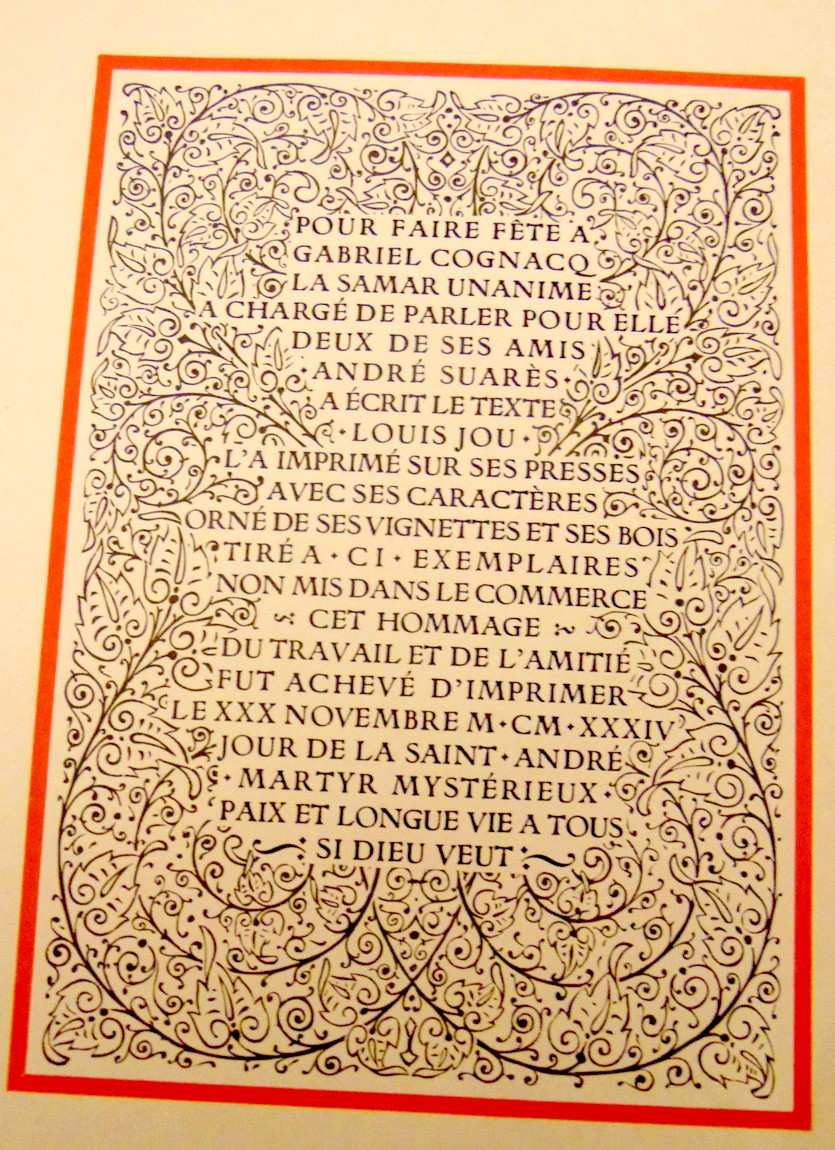 POUR FAIRE FÊTE A
GABRIEL COGNACQ
LA SAMAR UNANIME
A CHARGÉ DE PARLER POUR ELLE
DEUX DE SES AMIS
·ANDRÉ SUARÈS·
A ÉCRIT LE TEXTE
·LOUIS JOU·
L'A IMPRIMÉ SUR SES PRESSES
AVEC SES CARACTÈRES
ORNÉ DE SES VIGNETTES ET SES BOIS
TIRÉ A · CI · EXEMPLAIRES
NON MIS DANS LE COMMERCE
CET HOMMAGE
DU TRAVAIL ET DE L'AMITIÉ
FUT ACHEVÉ D'IMPRIMER
LE XXX NOVEMBRE M·CM·XXXIV
JOUR DE LA SAINT·ANDRÉ
·MARTYR MYSTÉRIEUX·
PAIX ET LONGUE VIE A TOUS
SI DIEU VEUT